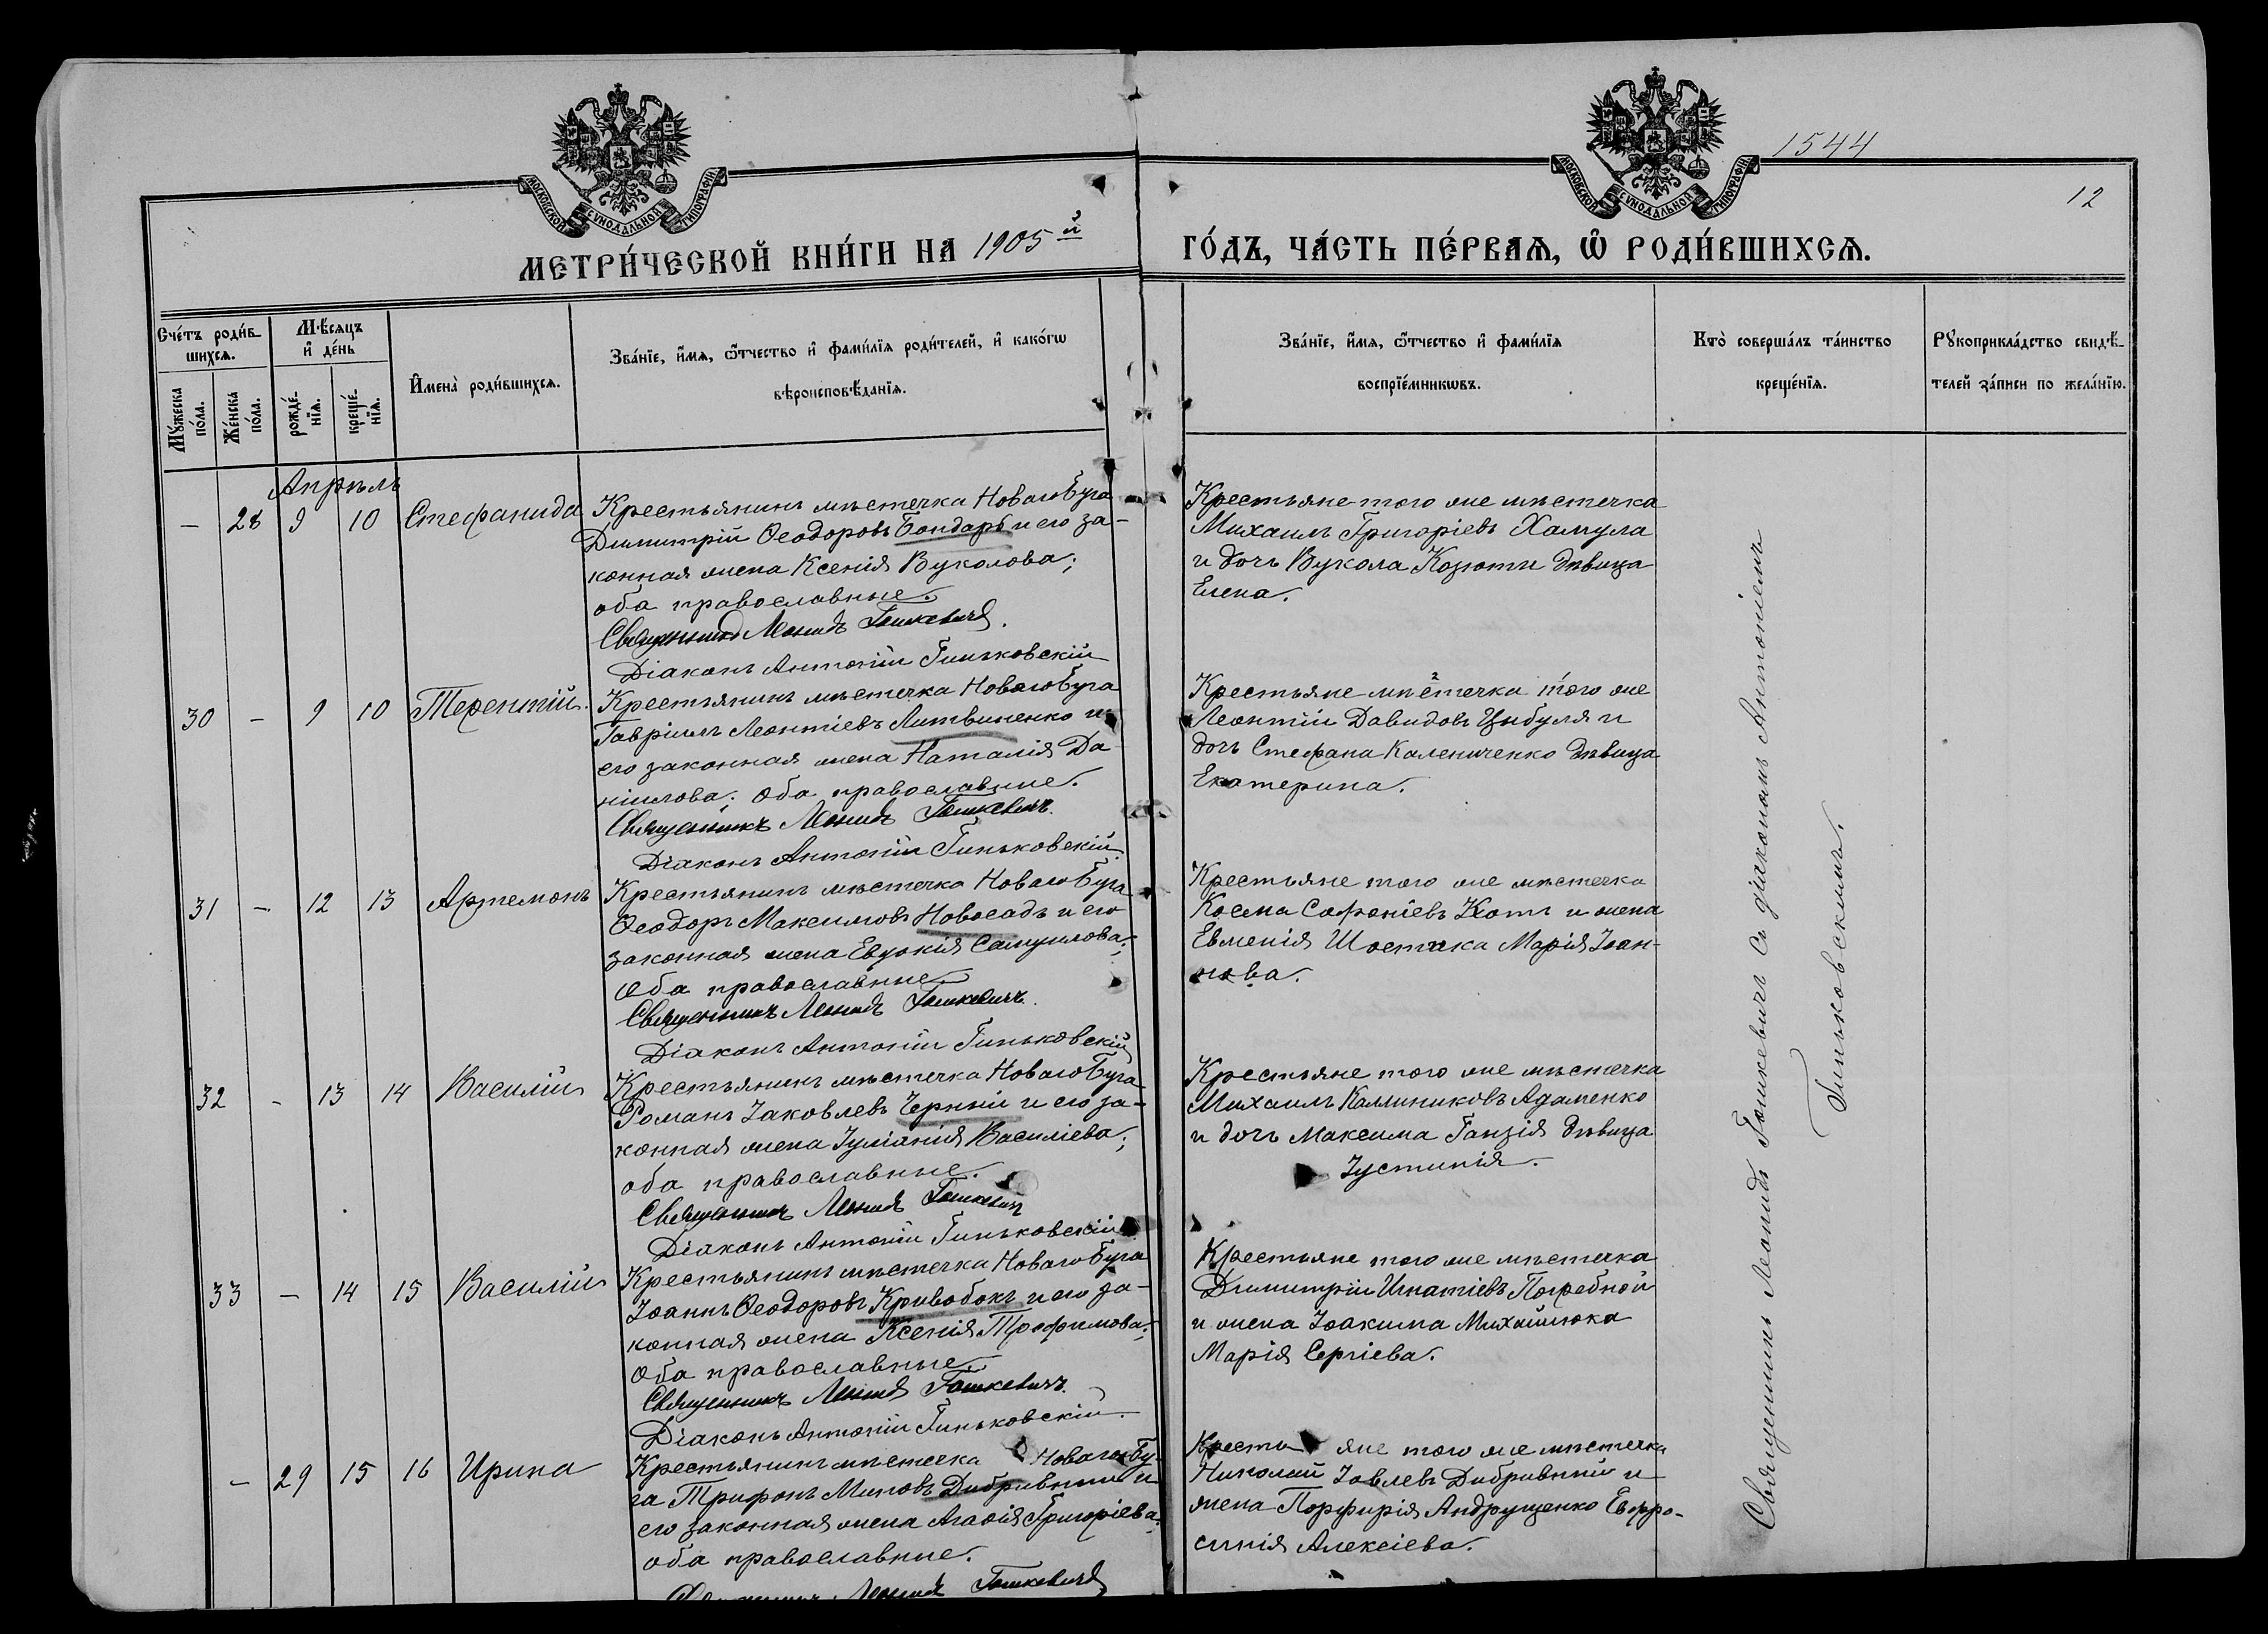 МОСКОВСКОЙ СѴНОДАЛЬНОЙ ТИПОГРАФІИ
МОСКОВСКОЙ СѴНОДАЛЬНОЙ ТИПОГРАФІИ
1544
12
МЕТРИ́ЧЕСКОЙ КНИ́ГИ НА 1905й
ГО́ДЪ, ЧА́СТЬ ПЕ́РВАѦ, Ѽ РОДИ́ВШИХСѦ.
Сче́тъ роди́в-
шихсѧ.
Мѣ́сяцъ
и҆ де́нь
Мꙋ́жеска
по́ла.
Же́нска
по́ла.
рожде́-
нїѧ.
креще́-
нїѧ.
И҆мена̀ роди́вшихсѧ.
Зва́нїе, и҆́мѧ, ѻ҆́тчество и҆ фами́лїѧ роди́телей, и҆ како́гѡ
вѣроисповѣ́данїѧ.
Зва́нїе, и҆́мѧ, ѻ҆́тчество и҆ фами́лїѧ
воспрїе́мникѡвъ.
Кто̀ соверша́лъ та́инство
креще́нїѧ.
Рꙋкоприкла́дство свидѣ́-
телей за́писи по жела́нїю.
Апрѣль
— 28 9 10 Стефанида
Крестьянинъ мѣстечка Новаго Буга
Димитрій Ѳеодоровъ Бондарь и его за-
конная жена Ксенія Вуколова;
оба православные.
Священникъ Леонидъ Гошкевичъ.
Діаконъ Антоній Гиньковскій
Крестьяне того же мѣстечка
Михаилъ Григоріевъ Хамула
и дочь Вукола Козюти дѣвица
Елена.
30 — 9 10 Терентій.
Крестьянинъ мѣстечка Новаго Буга
Гавріилъ Леонтіевъ Литвиненко и
его законная жена Наталія Да-
ніилова; оба православные.
Священникъ Леонидъ Гошкевичъ.
Діаконъ Антоній Гиньковскій
Крестьяне мѣстечка того же
Леонтій Давидовъ Цыбуля и
дочь Стефана Калениченко дѣвица
Екатерина.
31 — 12 13 Артемонъ
Крестьянинъ мѣстечка Новаго Буга
Ѳеодоръ Максимовъ Новосадъ и его
законная жена Евдокія Самуилова;
оба православные
Священникъ Леонидъ Гошкевичъ.
Діаконъ Антоній Гиньковскій
Крестьяне того же мѣстечка
Косма Софоніевъ Котъ и жена
Евменія Шостака Марія Іоан-
нова.
32 — 13 14 Василій
Крестьянинъ мѣстечка Новаго Буга
Романъ Іаковлевъ Черный и его за-
конная жена Іуліанія Василіева;
оба православные.
Священникъ Леонидъ Гошкевичъ
Діаконъ Антоній Гиньковскій
Крестьяне того же мѣстечка
Михаилъ Каллиниковъ Адаменко
и дочь Максима Ганзія дѣвица
Іустинія.
33 — 14 15 Василій
Крестьянинъ мѣстечка Новаго Буга
Іоаннъ Ѳеодоровъ Кривобокъ и его за-
конная жена Ксенія Трофимова;
оба православные.
Священникъ Леонидъ Гошкевичъ.
Діаконъ Антоній Гиньковскій.
Крестьяне того же мѣстечка
Димитрій Игнатіевъ Погребной
и жена Іоакима Михайлюка
Марія Сергіева.
— 29 15 16 Ирина
Крестьянинъ мѣстечка Новаго Бу-
га Трифонъ Миновъ Дибривный и
его законная жена Агаѳія Григоріева;
оба православные.
Священникъ Леонидъ Гошкевичъ
Крестьяне того же мѣстечка
Николай Іовлевъ Дибривный и
жена Порфирія Андрущенко Евфро-
синія Алексіева.
Священникъ Леонидъ Гошкевичъ съ діакономъ Антоніемъ
Гиньковскимъ.